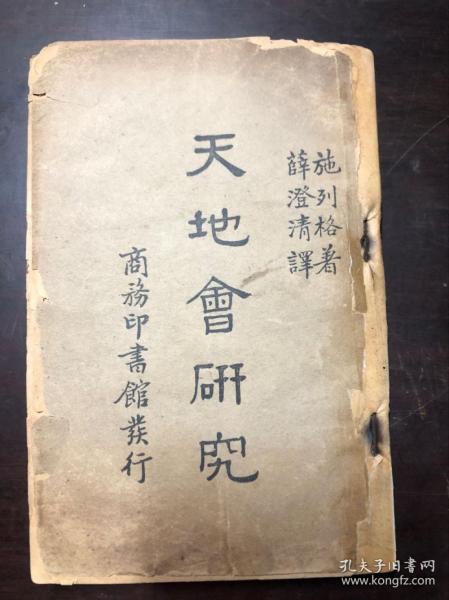 施列格著
薛澄清譯
天地會研究
商務印書館發行
孔夫子旧书网
www.kongfz.com